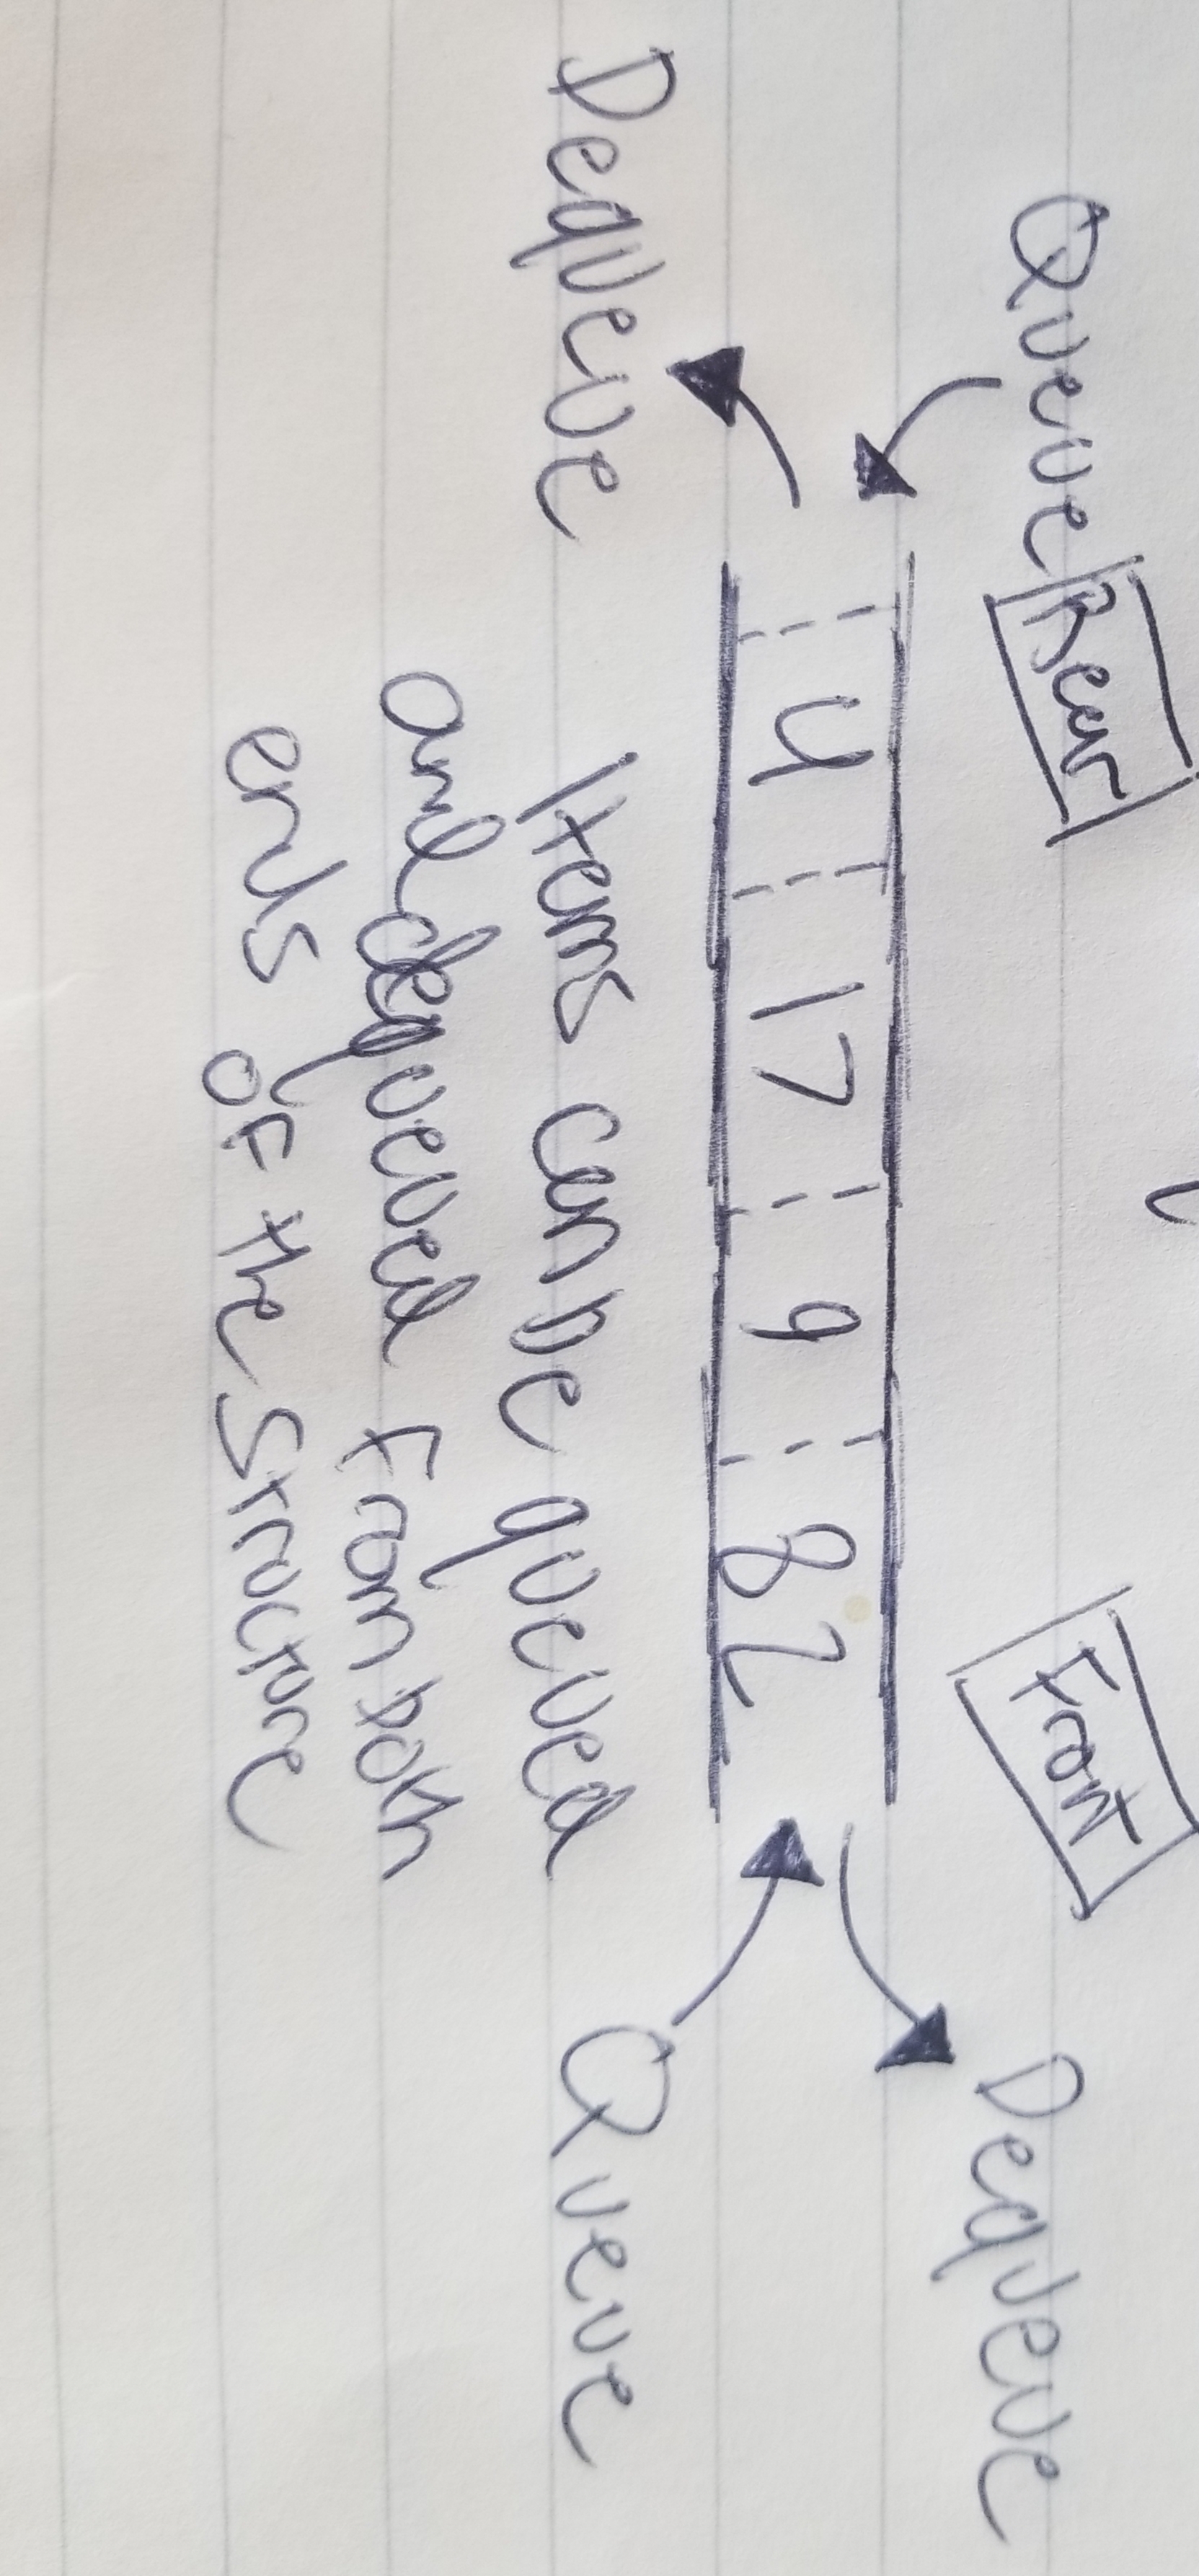 Queue Rear Front Dequeue
4 17 9 82
Dequeue Queue
Items can be queued
and dequeued from both
ends of the structure